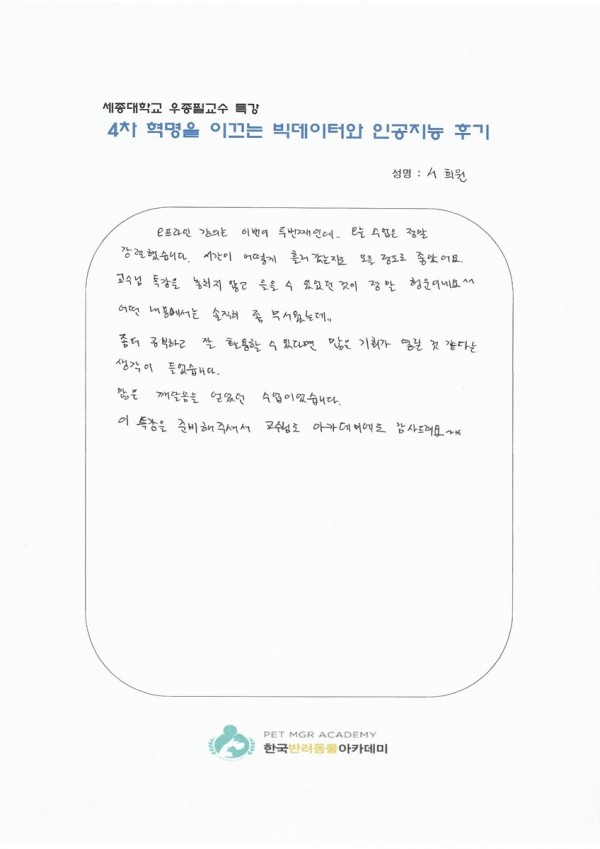 세종대학교 우종필교수 특강
4차 혁명을 이끄는 빅데이터와 인공지능 후기
성명 : 서 희원
오프라인 강의는 이번이 두번째인데.. 오늘 수업은 정말
강렬했습니다. 시간이 어떻게 흘러 갔는지도 모를 정도로 좋았어요.
교수님 특강을 놓치지 않고 들을 수 있었던 것이 정말 행운이네요^^
어떤 내용에서는 솔직히 좀 무서웠는데,,
좀더 공부하고 잘 활용할 수 있다면 많은 기회가 열릴 것 같다는
생각이 들었습니다.
많은 깨달음을 얻었던 수업이었습니다.
이 특강을 준비해주셔서 교수님도 아카데미에도 감사드려요~^^
PET MGR ACADEMY
한국반려동물아카데미